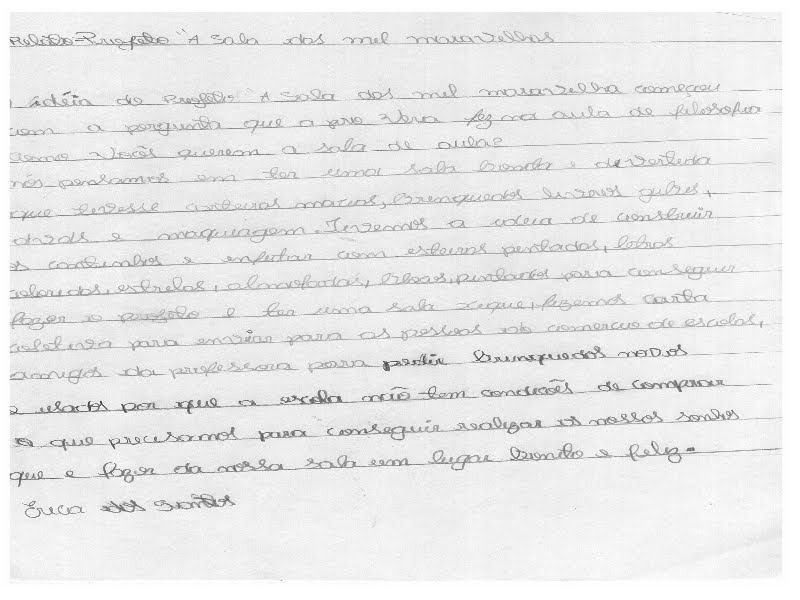 "A sala das mel maravelhas
idéia do A sala dos mel maravelha começou
com a pergunta que a pro Vera fez na aula de filosofia
como vocês querem a sala de aula?
nós pensamos em ter uma sala bonita e devertida
que tevesse macias, brinquedos livros gibes,
e maquiagem. Tevemos a ideia de construir
os cantinhos e enfeitar com esteiras pentadas,
coloridos, estrelas, almofadas, para conseguir
fazer o e ter uma sala xique, fizemos carta
coletiva para enviar para as pessoas do comercio de
amigos da professora para pedir brinquedos novos
e usados por que a escola não tem condições de comprar
o que precisamos para conseguir realizar os nossos sonhos
que e fazer da nossa sala um lugar bonito e feliz.
Erica dos Santos